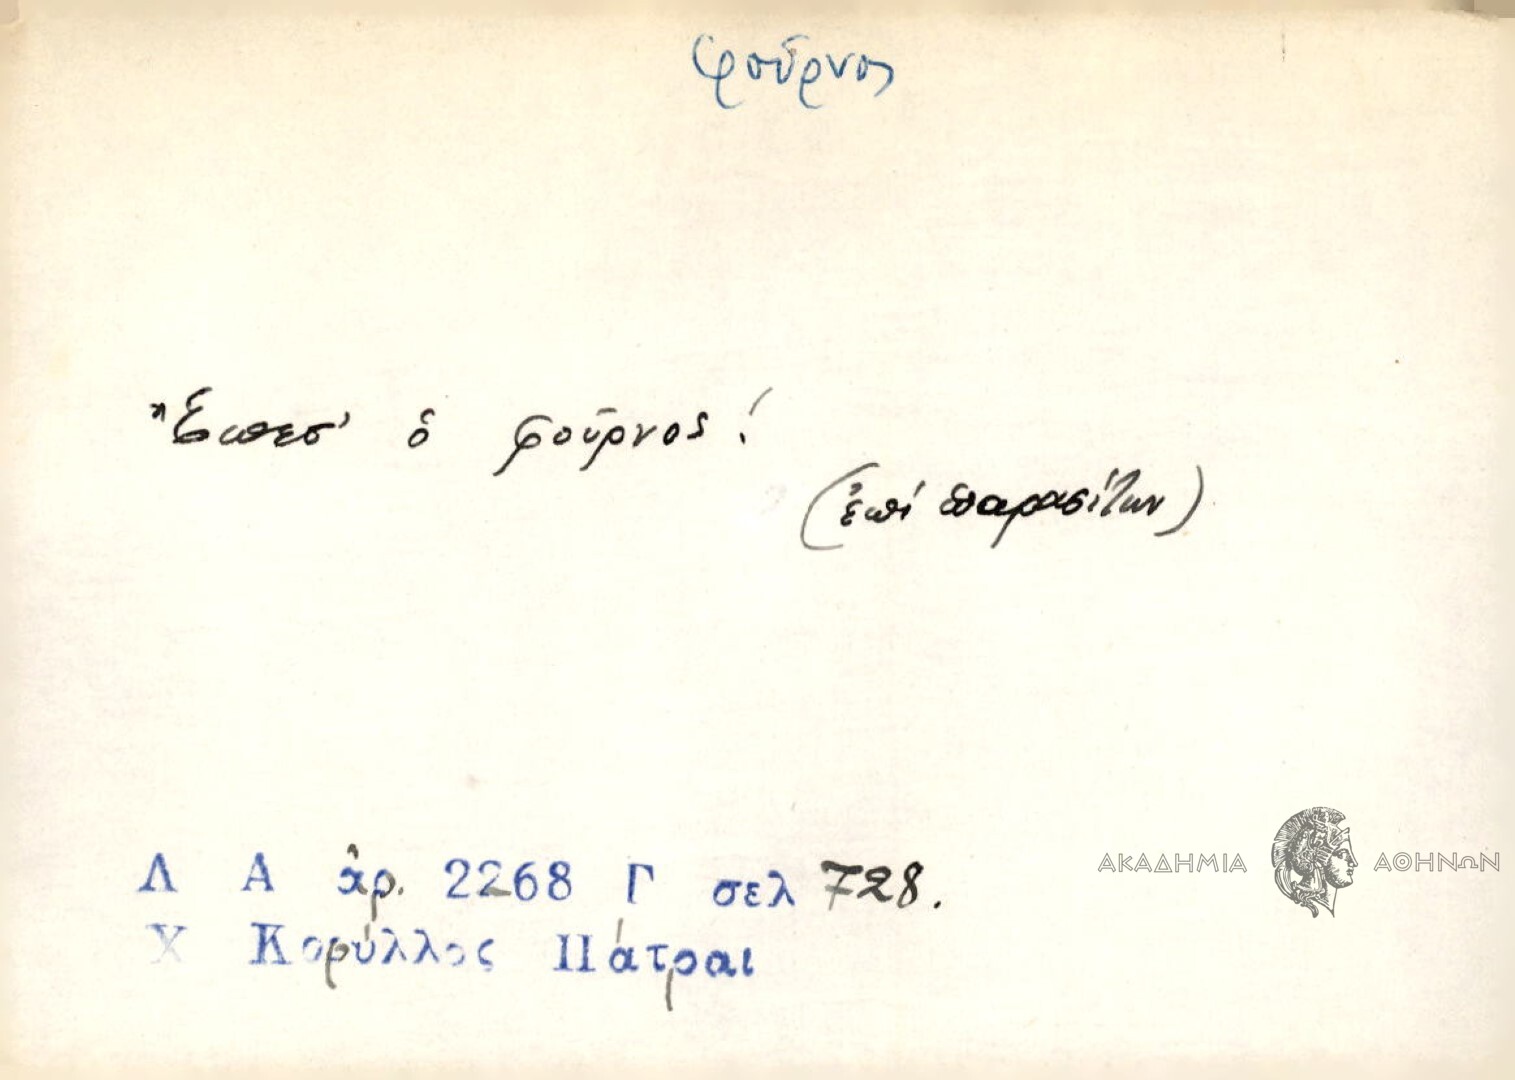 φοῦρνος
Ἔπεσ' ὁ φοῦρνος!
(ἐπί παρασίτων)
Λ Α ἀρ. 2268 Γ σελ 728.
Χ Κορύλλος Πάτραι
ΑΚΑΔΗΜΙΑ ΑΘΗΝΩΝ